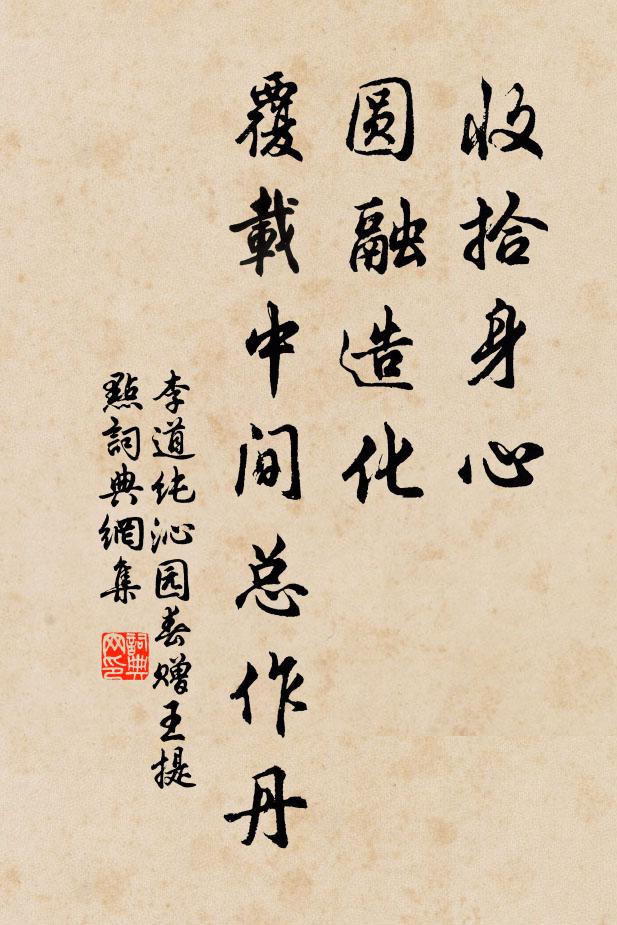 收拾身心
圆融造化
覆載中间总作丹
李道纯沁园春赠王提
點詞典網集
詞典
网印